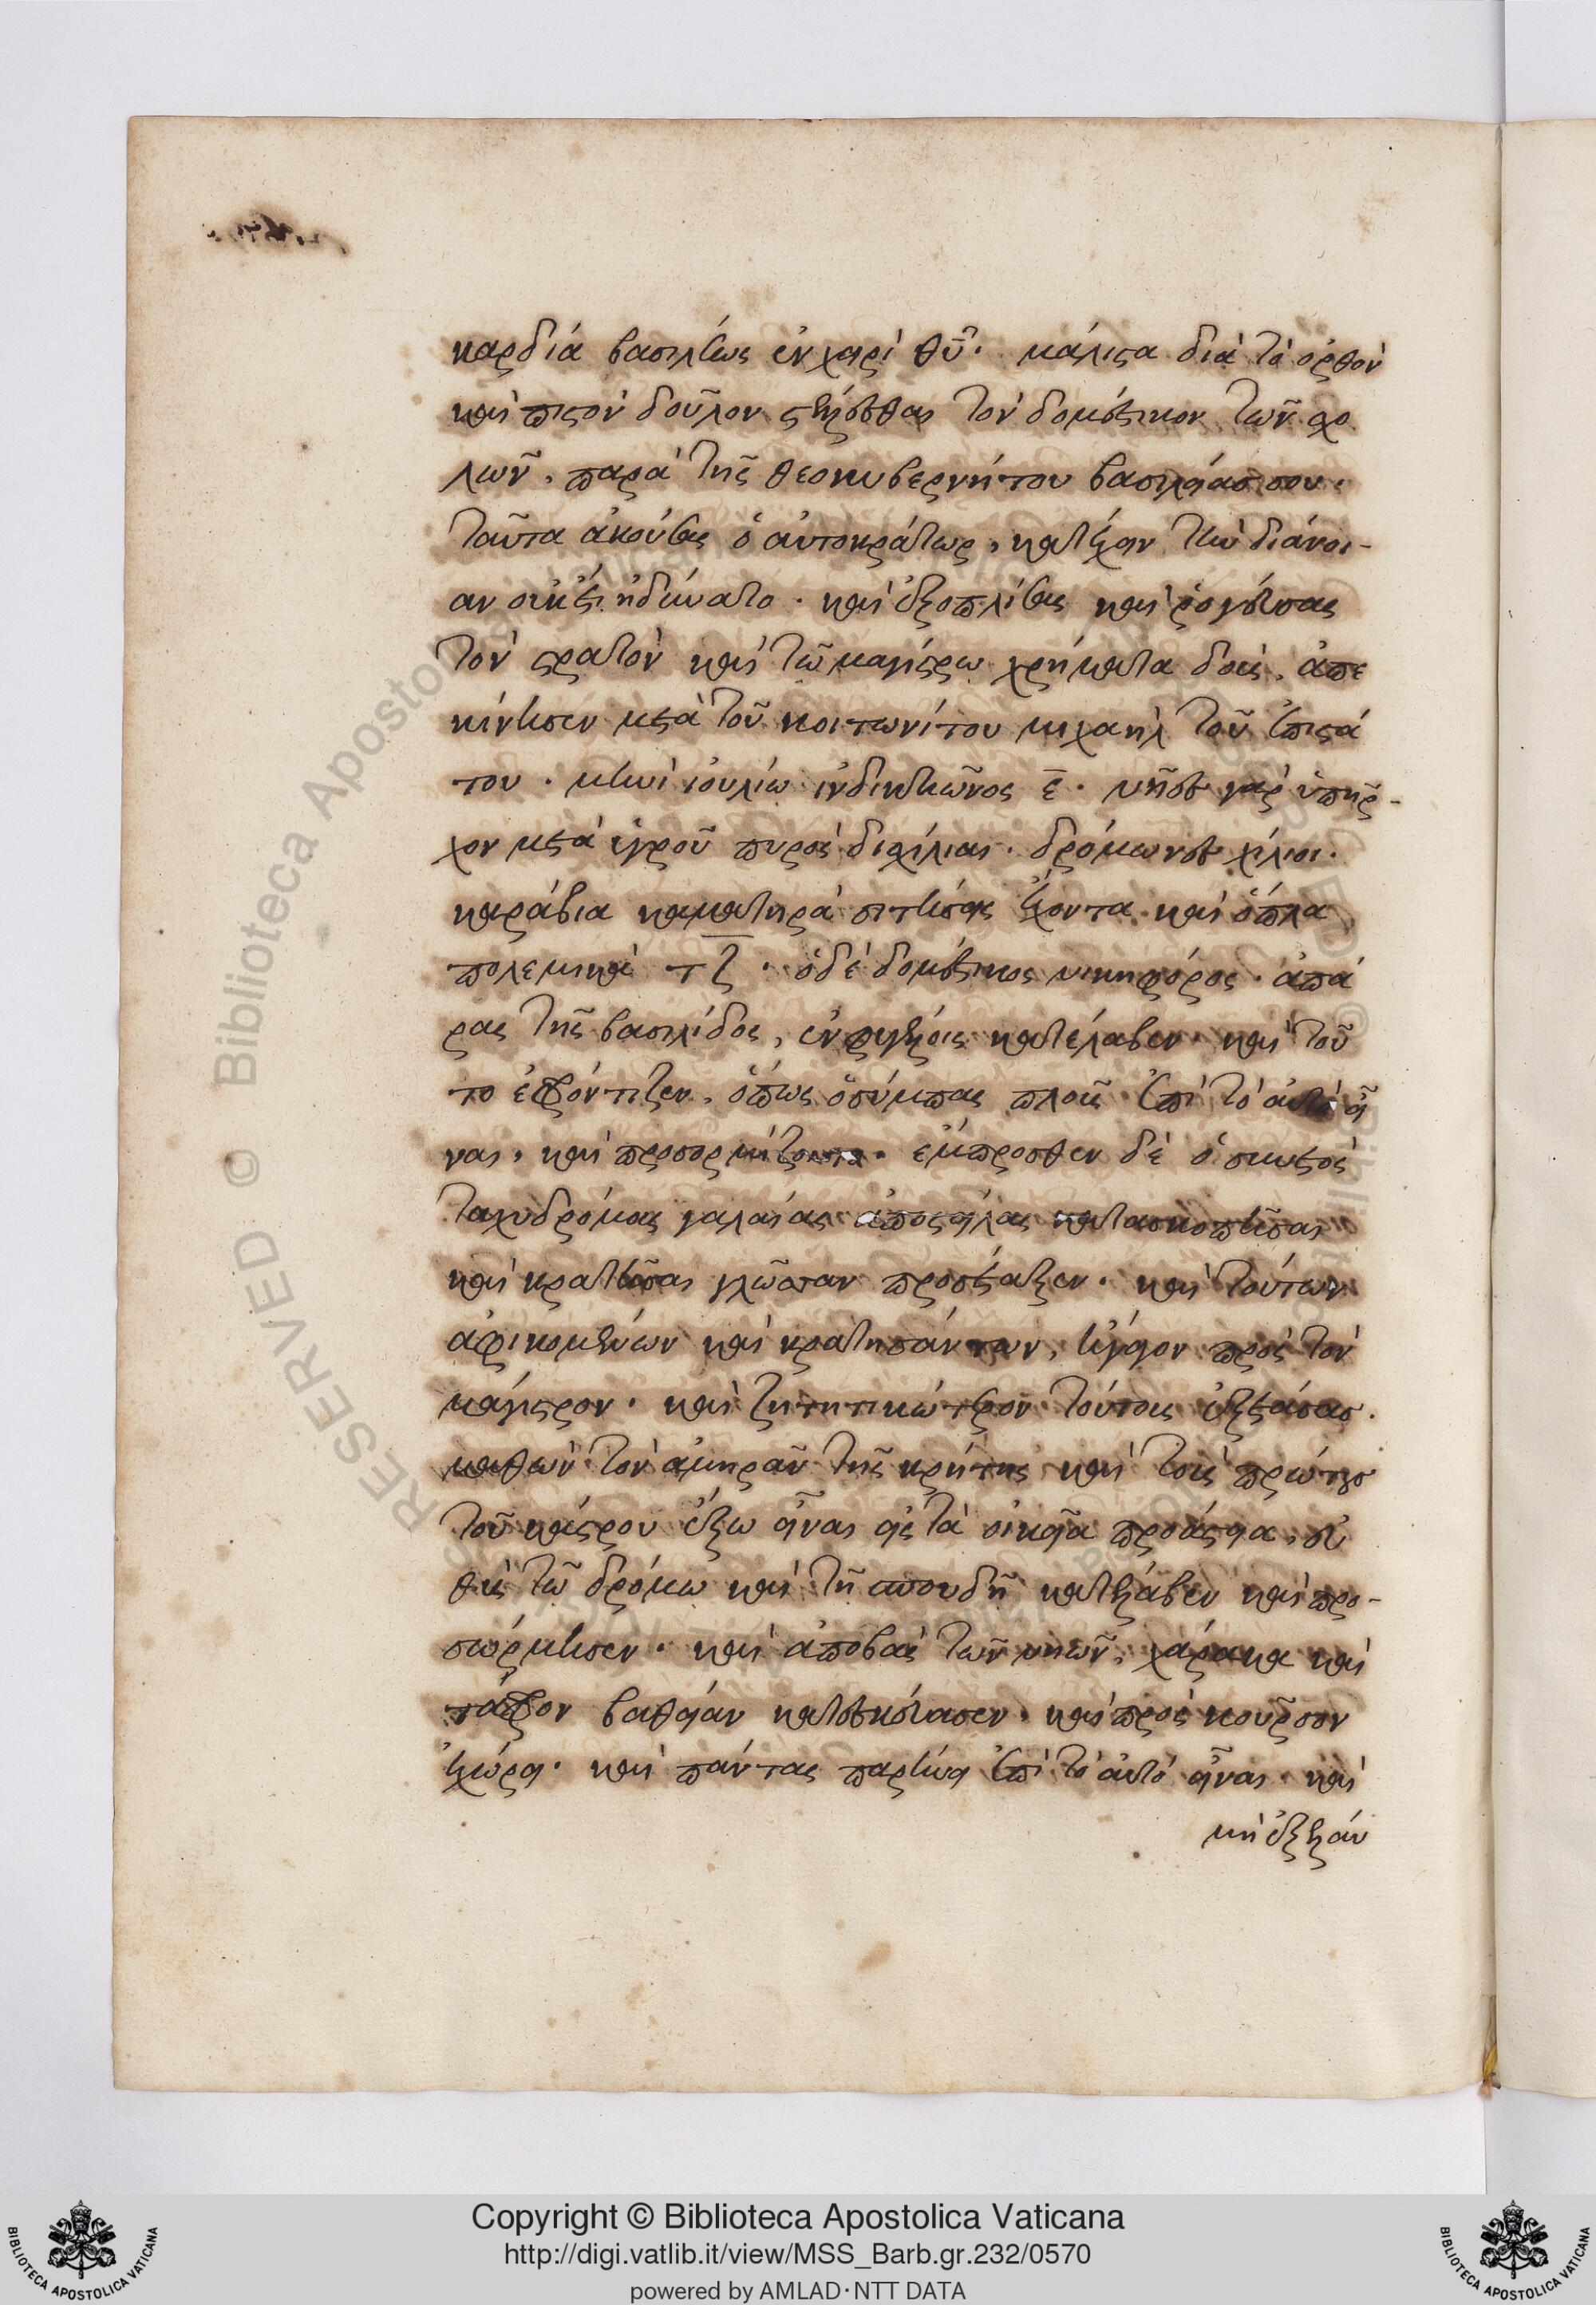 καρδία βασιλέως ἐν χειρὶ θῦ· μάλιστα διὰ τὸ ὀρθὸν
καὶ πιστὸν δοῦλον στέλλεσθαι τὸν δομέστικον τῶν σχο
λῶν, παρὰ τῆς θεοκυβερνήτου βασιλείας σου.
ταῦτα ἀκούσας ὁ αὐτοκράτωρ, κατέχειν τὴν διάνοι-
αν οὐκέτι ἠδύνατο. καὶ ἐξοπλίσας καὶ ῥογεύσας
τὸν στρατὸν καὶ τῶ μαγίστρω χρήματα δοὺς, ἀπε
κίνησεν μετὰ τοῦ κοιτωνίτου μιχαὴλ τοῦ ἐπιστά
του. μηνὶ ἰουλίω ἰνδικτιῶνος ε̄. νῆες γὰρ ὑπῆρ-
χον μετὰ ὑγροῦ πυρὸς δισχίλιαι. δρόμωνες χίλιοι.
καράβια καματηρὰ σιτήσεις ἔχοντα καὶ ὅπλα
πολεμικὰ τζ. ὁ δὲ δομέστικος νικηφόρος. ἀπά
ρας τῆς βασιλίδος, ἐν φυγέλοις κατέλαβεν. καὶ τοῦ
το ἐφρόντιζεν, ὅπως ὁ σύμπας πλοῦς ἐπὶ τὸ αὐτὸ εἶ
ναι, καὶ προσορμίζεσθαι. ἔμπροσθεν δὲ ὁ σκυτὸς
ταχυδρόμους γαλαίας ἀποστείλας κατασκοπῆσαι
καὶ κρατῆσαι γλῶσσαν προσέταξεν. καὶ τούτων
ἀφικομένων καὶ κρατησάντων, ἤγαγον πρὸς τὸν
μάγιστρον. καὶ ζητητικώτερον τούτους ἐξετάσας.
μαθὼν τὸν ἀμηρᾶν τῆς κρήτης καὶ τοὺς πρώτους
τοῦ κάστρου ἔξω εἶναι εἰς τὰ οἰκεῖα προάστεια, εὐ
θὺς τῶ δρόμω καὶ τῆ σπουδῆ κατέλαβεν καὶ προ-
σώρμησεν. καὶ ἀποβὰς τῶν νηῶν, χάρακα καὶ
τάφρον βαθεῖαν κατεσκεύασεν. καὶ πρὸς κοῦρσον
ἐχώρει. καὶ πάντας παρήνει ἐπὶ τὸ αὐτὸ εἶναι. καὶ
μὴ ἐξελάυ
Copyright © Biblioteca Apostolica Vaticana
http://digi.vatlib.it/view/MSS_Barb.gr.232/0570
powered by AMLAD·NTT DATA